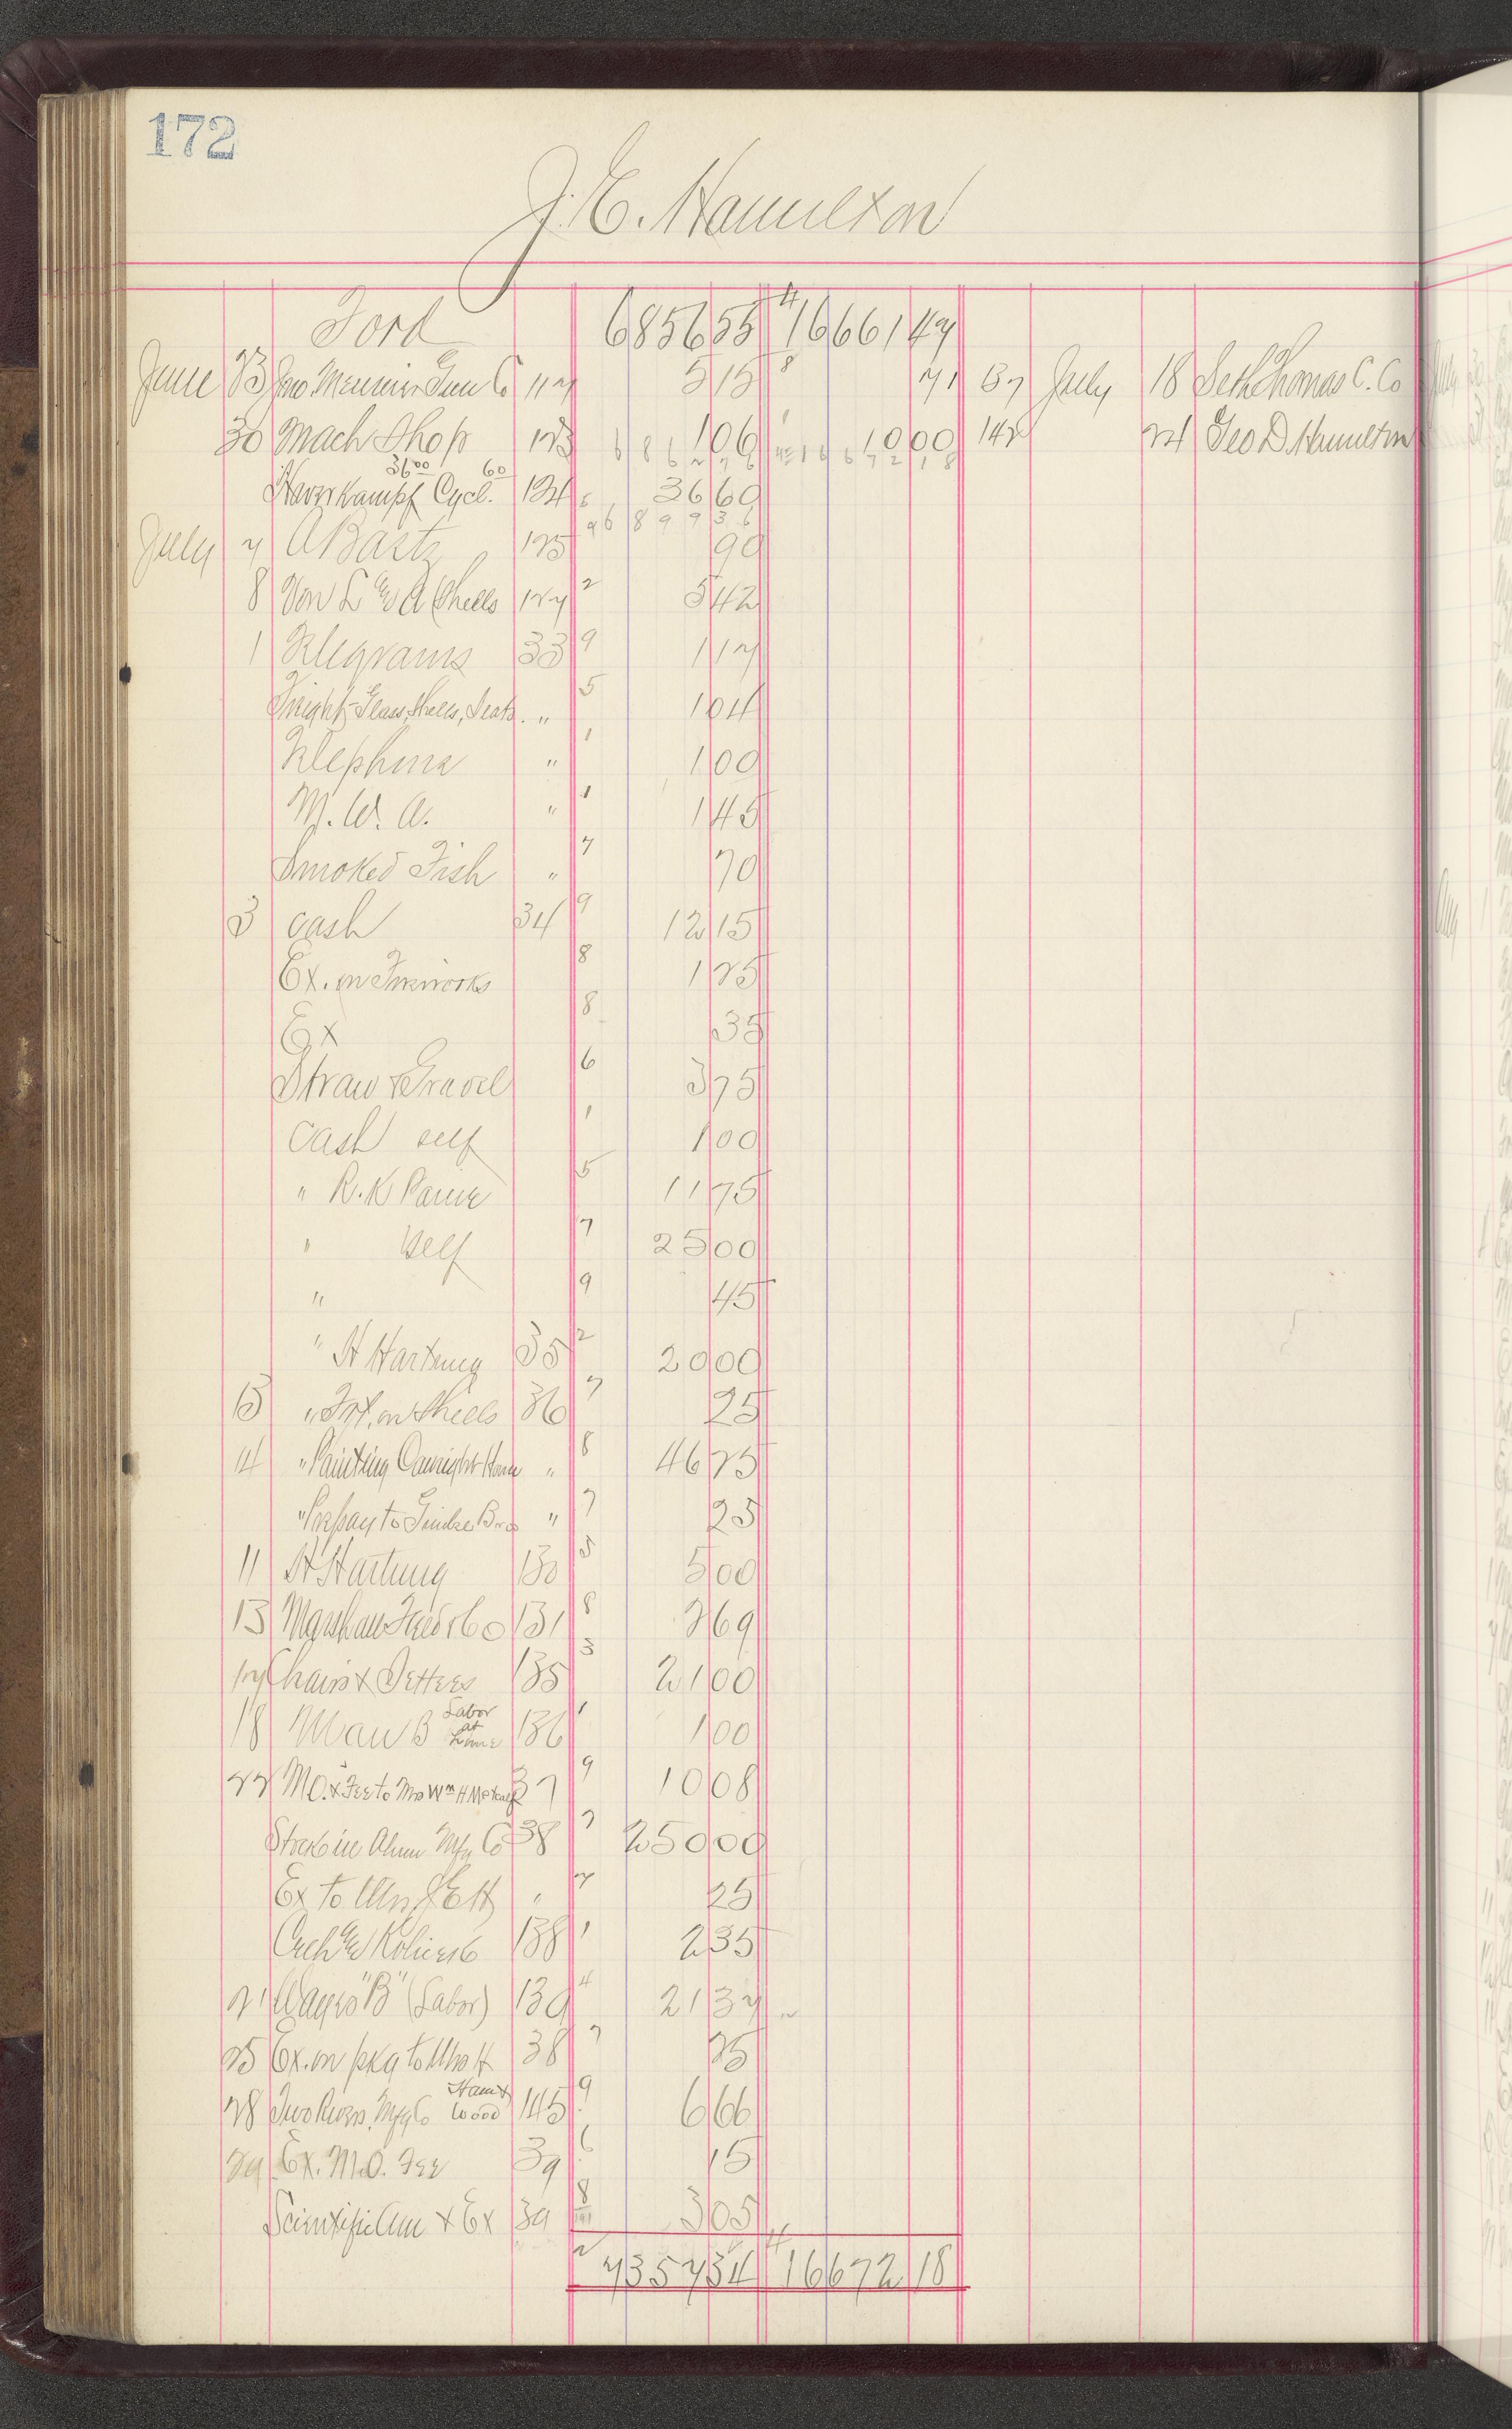 172
J. E. Hamilton
Ford 6856 55 16661 47
June 23 Jno. Meunier Gun Co 117 5 15 71 137 July 18 Seth Thomas C. Co
30 Mach Shop 123 1 06 10 00 142 24 Geo D. Hamilton
36 00 60
Haverkampf Cycl. 124 36 60
6 8 9 9 3 6
July 7 A Bastz 125 90
8 Von L & A Shells 127 2 5 42
1 Telegrams 33 9 1 17
Freight Glass, Shells, Seats. " 5 1 04
Telephone " 1 1 00
M. W. A. " 1 1 45
Smoked Fish " 7 70
3 Cash 34 9 12 15
Ex. on Fireworks 8 1 25
Ex 8 35
Straw & Gravel 6 3 75
Cash self 1 1 00
" R. K Paine 5 11 75
" Self 7 25 00
" 9 45
" H Hartung 35 2 20 00
13 " Frt. on Shells 36 7 25
14 " Painting House " 8 46 25
" Prepay to Bros " 7 25
11 H Hartung 130 5 5 00
13 Marshall Field & Co 131 8 3 69
17 Chairs & Settees 135 3 21 00
18 Man B Labor at home 136 1 1 00
22 M.O. & Fee to Mrs Wm H Metcalf 37 9 10 08
Stock in Alum Mfg Co 38 7 250 00
Ex to Mrs J E H " 7 25
138 1 2 35
21 Wages "B" (Labor) 139 4 21 37
25 Ex. on pkg to Mrs H 38 7 25
28 Two Rivers Mfg Co Ham & Wood 145 9 6 66
29 Ex. M.O. Fee 39 6 15
Scientific Am & Ex 39 8 3 05
2 7357 34 4 16672 18